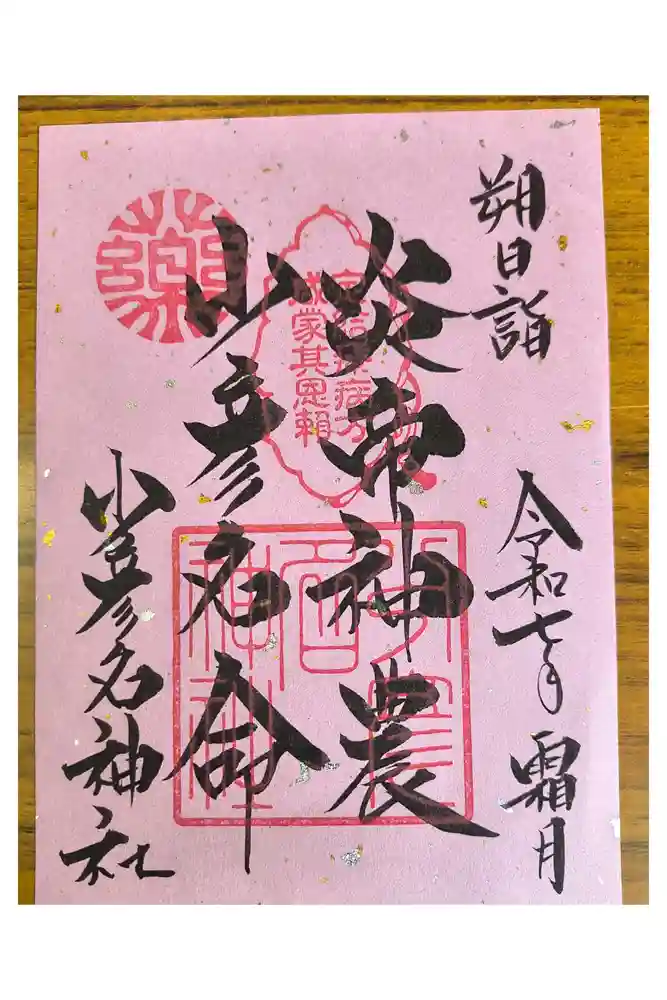 朔日詣
令和七年 霜月
炎帝神農
少彦名命
少彦名神社
薬
咸蒙其恩頼